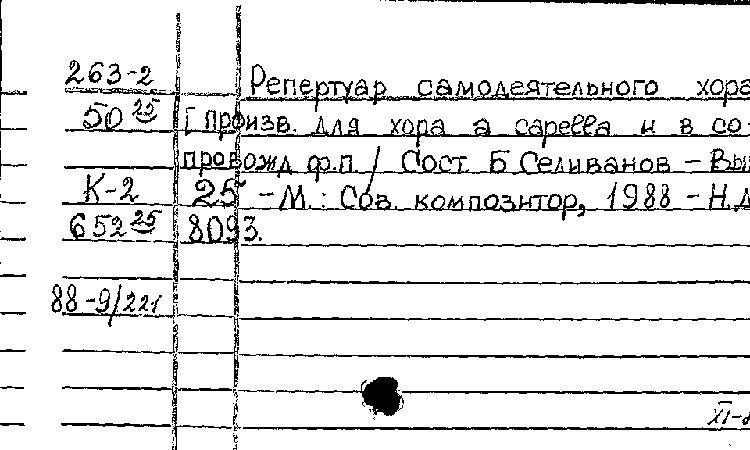 263-2 Репертуар самодеятельного хора
50 25 [Произв. для хора а capella и в со-
провожд ф.п. / Сост. Б Селиванов - Вып
К-2 25 - М.: Сов. композитор, 1988 - Н.д
652 25 8093.
88-9/221
XI-8